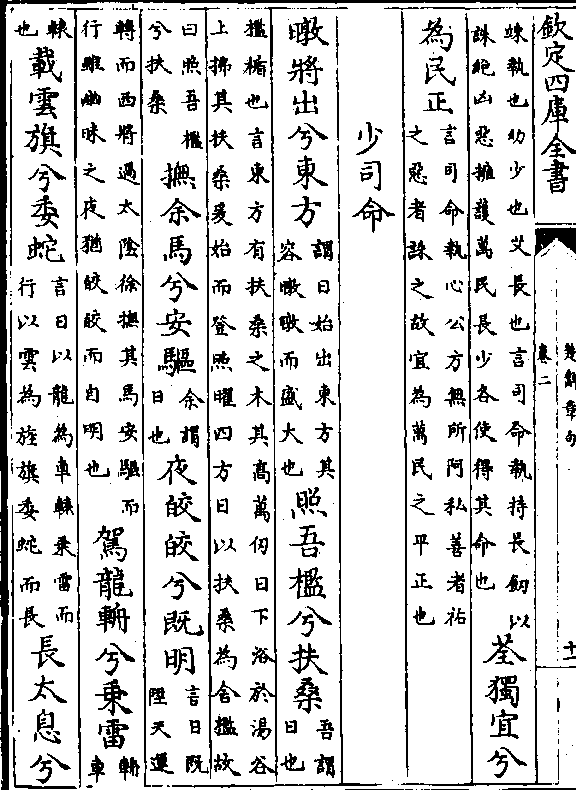 欽定四庫全書
楚辭章句
卷二
十一
竦執也幼少也艾長也言司命執持長劒以
誅絶凶惡擁護萬民長少各使得其命也
荃獨宜兮
為民正
言司命執心公方無所阿私善者祐
之惡者誅之故宜為萬民之平正也
少司命
暾將出兮東方
謂日始出東方其
容暾暾而盛大也
照吾檻兮扶桑
吾謂
日也
檻楯也言東方有扶桑之木其高萬仞日下浴於湯谷
上拂其扶桑爰始而登照曜四方日以扶桑為舍檻故
曰照吾檻
兮扶桑
撫余馬兮安驅
余謂
日也
夜皎皎兮既明
言日既
陞天運
轉而西將過太陰徐撫其馬安驅而
行雖幽昧之夜猶皎皎而自明也
駕龍輈兮乗雷
輈
車
轅
也
載雲旗兮委蛇
言日以龍為車轅乗雷而
行以雲為旌旗委蛇而長
長太息兮